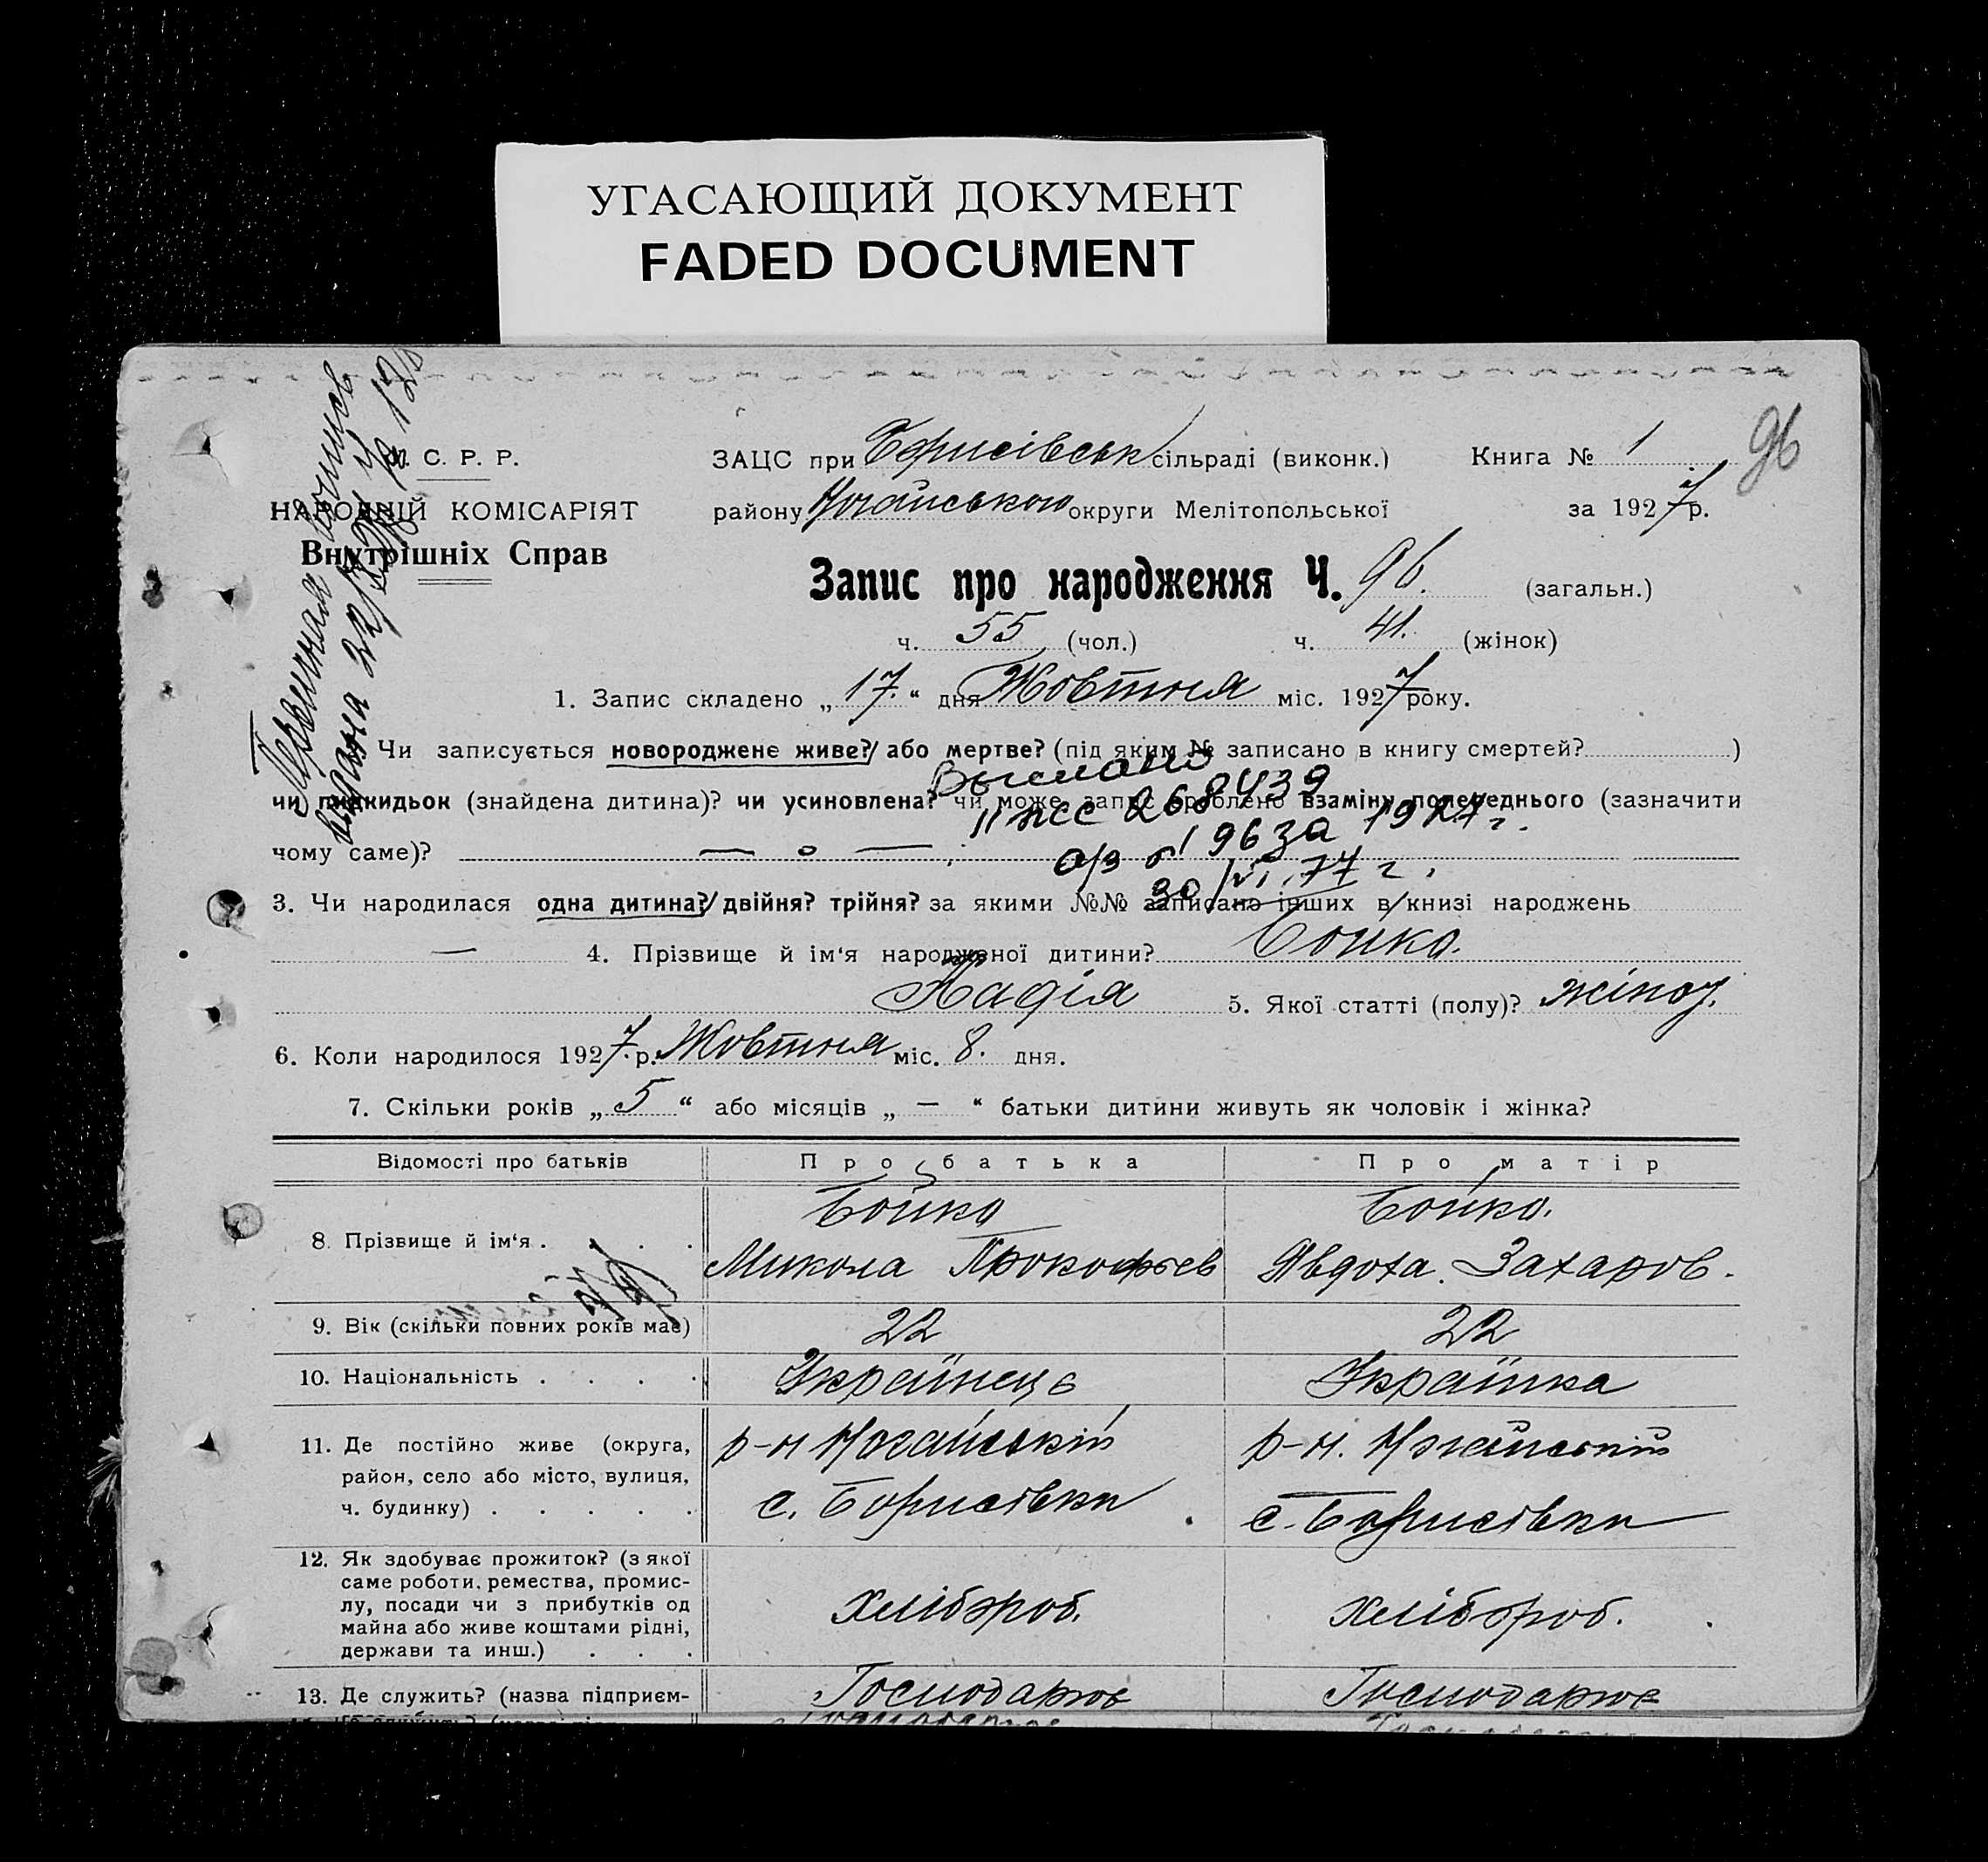 УГАСАЮЩИЙ ДОКУМЕНТ
FADED DOCUMENT
96
У. С. Р. Р.
НАРОДНІЙ КОМІСАРІЯТ
Внутрішніх Справ
ЗАЦС при Борисівськ сільраді (виконк.) Книга № 1
району Ногайського округи Мелітопольської за 1927 р.
Запис про народження Ч. 96. (загальн.)
ч. 55 (чол.) ч. 41. (жінок)
1. Запис складено „17.“ дня Жовтня міс. 1927 року.
Чи записується новороджене живе? або мертве? (під яким № записано в книгу смертей? )
чи підкидьок (знайдена дитина)? чи усиновлена? чи може запис зроблено взаміну попереднього (зазначити
чому саме)? — о —
Выслано
II ЖС 268439
а/з № 96 за 1927 г.
30/VI.77 г.
3. Чи народилася одна дитина? двійня? трійня? за якими №№ записано інших в книзі народжень
— 4. Прізвище й ім‘я народженої дитини? Бойко.
Надія 5. Якої статті (полу)? жіноч.
6. Коли народилося 1927. р. Жовтня міс. 8. дня.
7. Скільки років „5“ або місяців „—“ батьки дитини живуть як чоловік і жінка?
Відомості про батьків Про батька Про матір
8. Прізвище й ім‘я . . . . Бойко Бойко.
Микола Прокофьев Явдоха Захаров.
9. Вік (скільки повних років має) 22 22
10. Національність . . . . Українець Українка
11. Де постійно живе (округа, р-н Ногайській р-н. Ногайській
район, село або місто, вулиця,
ч. будинку) . . . . . с. Борисівки с. Борисівки
12. Як здобуває прожиток? (з якої
саме роботи, ремества, промис-
лу, посади чи з прибутків од хлібороб. хлібороб.
майна або живе коштами рідні,
держави та инш.) . . .
13. Де служить? (назва підприєм- Господарює Господарює